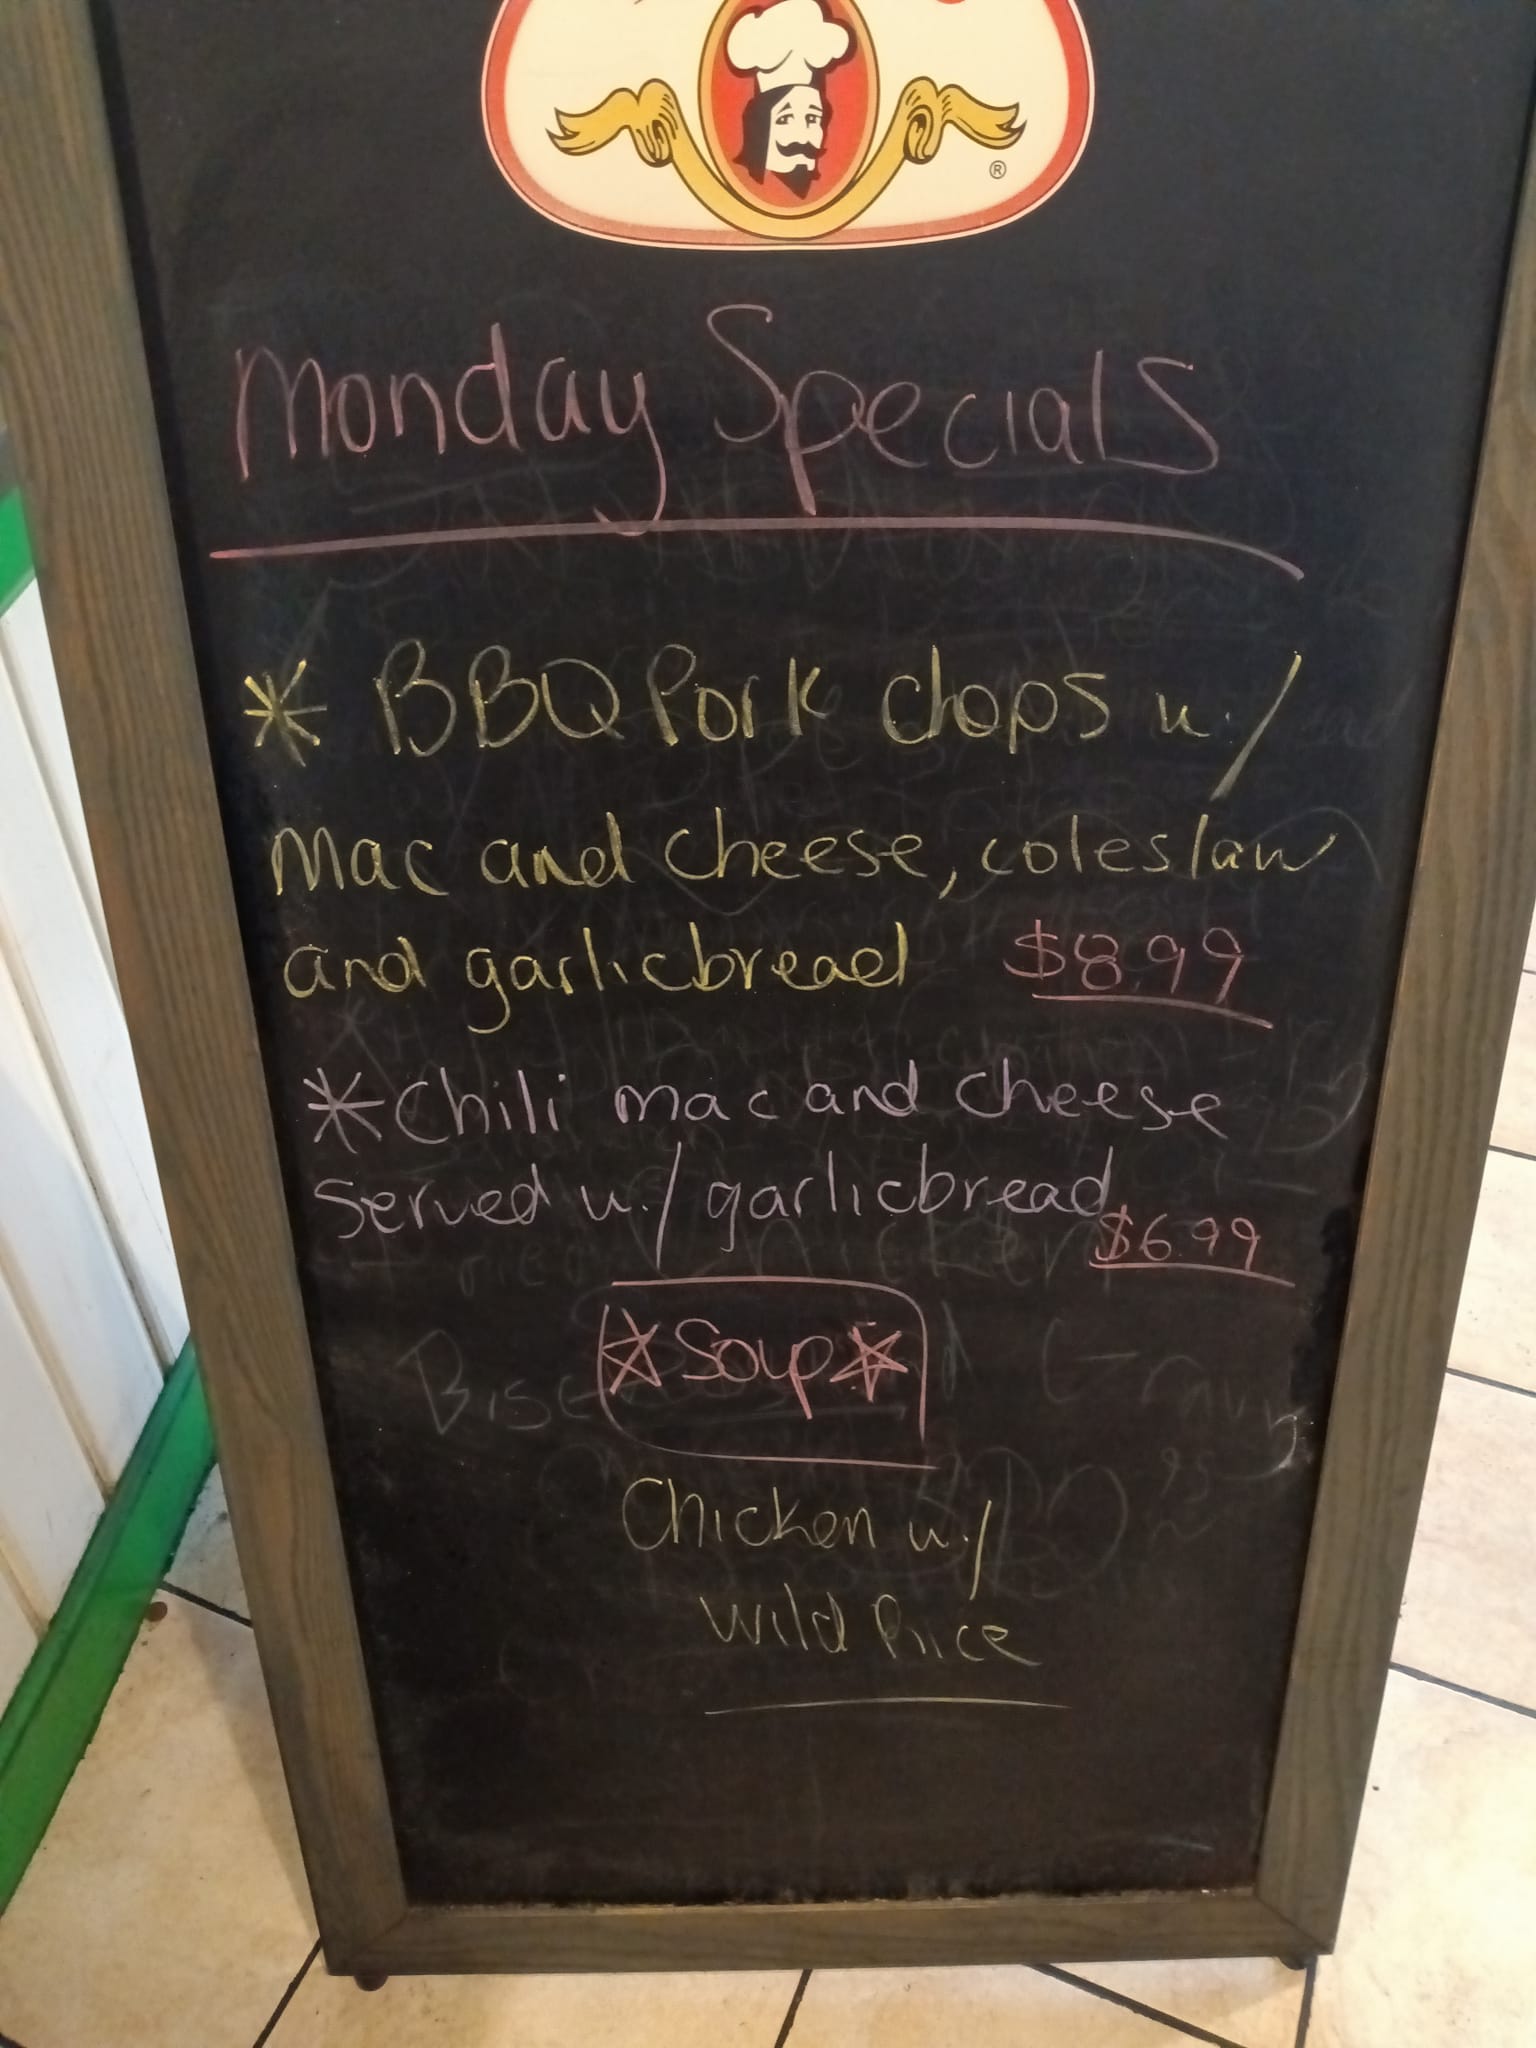 ®
Monday Specials
* BBQ Pork chops w/
Mac and cheese, coleslaw
and garlicbread $8.99
* Chili mac and cheese
Served w/ garlicbread
$6.99
☆ Soup ☆
Chicken w/
Wild Rice